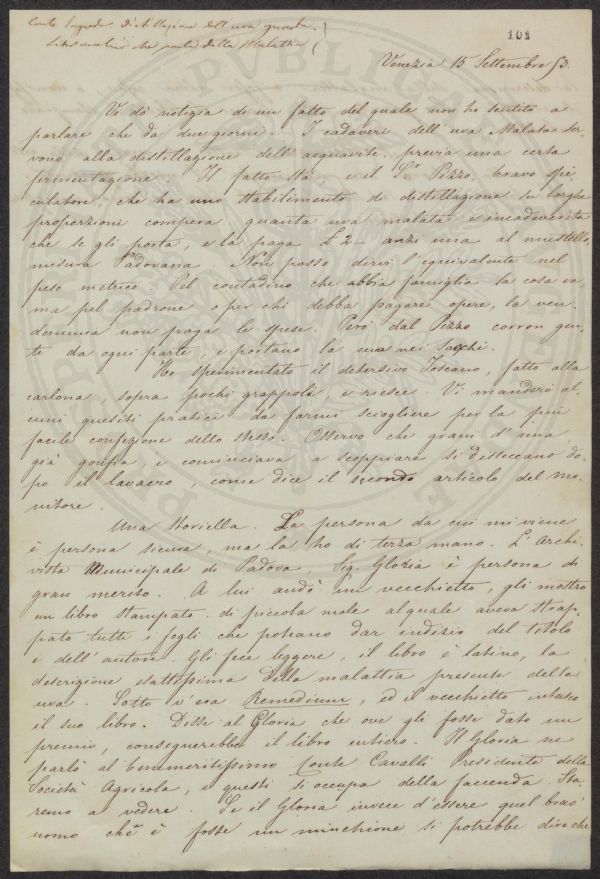 Conte Sagredo Distillazione dell'uva guasta.
Libro antico che parla della Malattia
101
Venezia 15 Settembre 53.
Vi dò notizia di un fatto del quale non ho sentito a
parlare che da due giorni. I cadaveri dell'uva Malata ser-
vono alla distillazione dell'acquavite, previa una certa
fermentazione. Il fatto stà e il Sr. Pizzo, bravo spe-
culatore, che ha uno stabilimento di distillazione su larghe
proporzioni compera quanta uva malata e incadaverita
che se gli porta, e la paga L 2 - anzi una al mastello
misura Padovana. Non posso dirvi l'equivalente nel
peso metrico. Pel contadino che abbia famiglia la cosa va,
ma pel padrone o per chi debba pagare opere, la ven-
demmia non paga le spese. Però dal Pizzo corron gen-
te da ogni parte, e portano la uva nei Sacchi.
Ho sperimentato il detersivo Toscano, fatto alla
carlona, sopra pochi grappoli, e riesce. Vi manderò al-
cuni quesiti pratici da farmi sciogliere per la più
facile confezione dello stesso. Osservo che grani d'uva
già gonfia e cominciava a scoppiare si disseccano do-
po il lavacro, come dice il secondo articolo del Mo-
nitore.
Una Storiella. La persona da cui mi viene
è persona sicura, ma la ho di terza mano. L'Archi-
vista Municipale di Padova, Sig. Gloria è persona di
gran merito. A lui andò un vecchietto, gli mostrò
un libro stampato di piccola mole al quale aveva strap-
pato tutti i fogli che poteano dar indizio del titolo
e dell'autore. Gli fece leggere, il libro è latino, la
descrizione esattissima della malattia presente della
uva. Sotto v'era Remedium, ed il vecchietto intasco
il suo libro. Disse al Gloria che ove gli fosse dato un
premio, consegnerebbe il libro intiero. Il Gloria ne
parlò al benemeritissimo Conte Cavalli Presidente della
Società Agricola, e questi si occupa della faccenda. Sta-
remo a vedere. Se il Gloria invece d'essere quel brav'
uomo che è fosse un minchione si potrebbe dire che